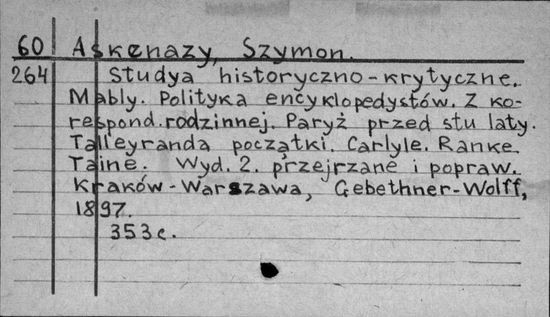 60 Askenazy, Szymon.
264 Studya historyczno-krytyczne.
Mably. Polityka encyklopedystów. Z ko-
respond. rodzinnej. Paryż przed stu laty.
Talleyranda początki. Carlyle. Ranke.
Taine. Wyd. 2. przejrzane i popraw.
Kraków-Warszawa, Gebethner-Wolff,
1897.
353 c.